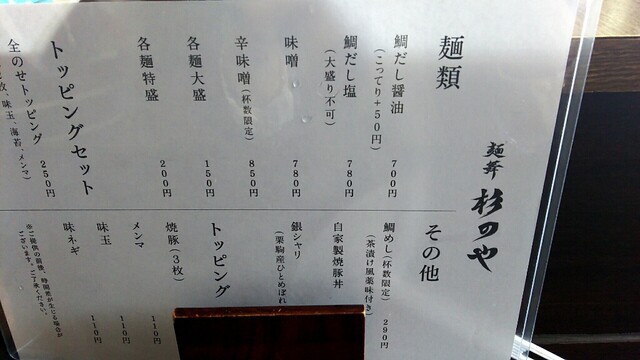 麺舞 杉のや
麺類
鯛だし醤油 700円
(こってり+50円)
鯛だし塩 780円
(大盛り不可)
味噌 780円
辛味噌(杯数限定) 850円
各麺大盛 150円
各麺特盛 200円
トッピングセット
全のせトッピング 250円
味玉、海苔、メンマ)
その他
鯛めし(杯数限定) 290円
(茶漬け風薬味付き)
自家製焼豚丼
銀シャリ
(栗駒産ひとめぼれ
トッピング
焼豚(3枚) 110円
メンマ 110円
味玉 110円
味ネギ
※ご提供の前後、時間差が生じる場合が
ございます。ご了承ください。